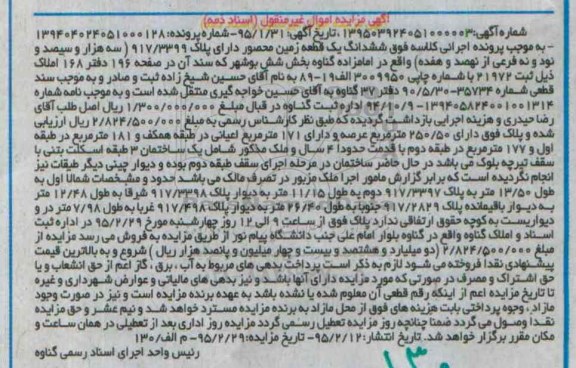 آگهی مزایده اموال غیرمنقول (اسناد ذمه)
شماره آگهی:۱۳۹۵۰۳۹۲۴۰۵۱۰۰۰۰۰۳، تاریخ آگهی: ۹۵/۱/۳۱-شماره پرونده:۱۳۹۴۰۴۰۲۴۰۵۱۰۰۰۱۲۸
- به موجب پرونده اجرائی کلاسه فوق ششدانگ یک قطعه زمین محصور دارای پلاک ۹۱۷/۳۳۹۹ ( سه هزار و سیصد و
نود و نه فرعی از نهصد و هفده) واقع در امامزاده گناوه بخش شش بوشهر که سند آن در صفحه ۱۹۶ دفتر ۱۶۸ املاک
ذیل ثبت ۲۱۹۷۲ با شماره چاپی ۳۰۰۹۹۵۰ الف۱۹-۸۹ به نام آقای حسین شیخ زاده ثبت و صادر و به موجب سند
قطعی شماره ۳۵۷۳۴-۹۰/۵/۳۰ دفتر ۳۷ گناوه به آقای حسین خواجه گیری منتقل شده است و به موجب نامه شماره
۱۳۹۴۰۵۸۲۴۰۰۱۰۰۱۳۱۴-۹۴/۱۰/۹ اداره ثبت گناوه در قبال مبلغ ۱/۳۰۰/۰۰۰/۰۰۰ ریال اصل طلب آقای
رضا حیدری و هزینه اجرایی بازداشت گردیده که طبق نظر کارشناس رسمی به مبلغ ۲/۸۲۴/۵۰۰/۰۰۰ ریال ارزیابی
شده و پلاک فوق دارای ۲۵۰/۵۰ مترمربع عرصه و دارای ۱۷۱ مترمربع اعیانی در طبقه همکف و ۱۸۱ مترمربع در طبقه
اول و ۱۷۷ مترمربع در طبقه دوم با قدمت حدودا ۴ سال و ملک مذکور شامل یک ساختمان ۳ طبقه اسکلت بتنی با
سقف تیرچه بلوک می باشد در حال حاضر ساختمان در مرحله اجرای سقف طبقه دوم بوده و دیوار چینی دیگر طبقات نیز
انجام نگردیده است که برابر گزارش مامور اجرا ملک مزبور در تصرف مالک می باشد حدود و مشخصات شمالا اول به
طول ۱۳/۵۰ متر به پلاک ۹۱۷/۳۳۹۷ دوم به طول ۱۱/۱۵ متر به دیوار پلاک ۹۱۷/۳۳۹۸ شرقا به طول ۱۲/۴۸ متر
به دیوار باقیمانده پلاک ۹۱۷/۲۸۲۹ جنوبا به طول ۲۶/۴۰ متر به دیوار پلاک ۹۱۷/۴۹۸ غربا به طول ۷/۹۸ متر در و
دیواریست به کوچه حقوق ارتفاقی ندارد پلاک فوق از ساعت ۹ الی ۱۲ روز چهارشنبه مورخ ۹۵/۲/۲۹ در اداره ثبت
اسناد و املاک گناوه واقع در گناوه بلوار امام علی جنب دانشگاه پیام نور از طریق مزایده به فروش می رسد مزایده از
مبلغ ۲/۸۲۴/۵۰۰/۰۰۰ (دو میلیارد و هشتصد و بیست و چهار میلیون و پانصد هزار ریال ) شروع و به بالاترین قیمت
پیشنهادی نقدا فروخته می شود لازم به ذکر است پرداخت بدهی های مربوط به آب ، برق ، گاز اعم از حق انشعاب و یا
حق اشتراک و مصرف در صورتی که مورد مزایده دارای آنها باشد و نیز بدهی های مالیاتی و عوارض شهرداری و غیره
تا تاریخ مزایده اعم از اینکه رقم قطعی آن معلوم شده یا نشده باشد به عهده برنده مزایده است و نیز در صورت وجود
مازاد ، وجوه پرداختی بابت هزینه های فوق از محل مازاد به برنده مزایده مسترد خواهد شد و نیم عشر و حق مزایده
نقدا وصول می گردد ضمنا چنانچه روز مزایده تعطیل رسمی گردد مزایده روز اداری بعد از تعطیلی در همان ساعت و
مکان مقرر برگزار خواهد شد. تاریخ انتشار:۹۵/۲/۱۲- تاریخ مزایده:۹۵/۲/۲۹- م الف/۱۳۰
رئیس واحد اجرای اسناد رسمی گناوه
۱۳۰